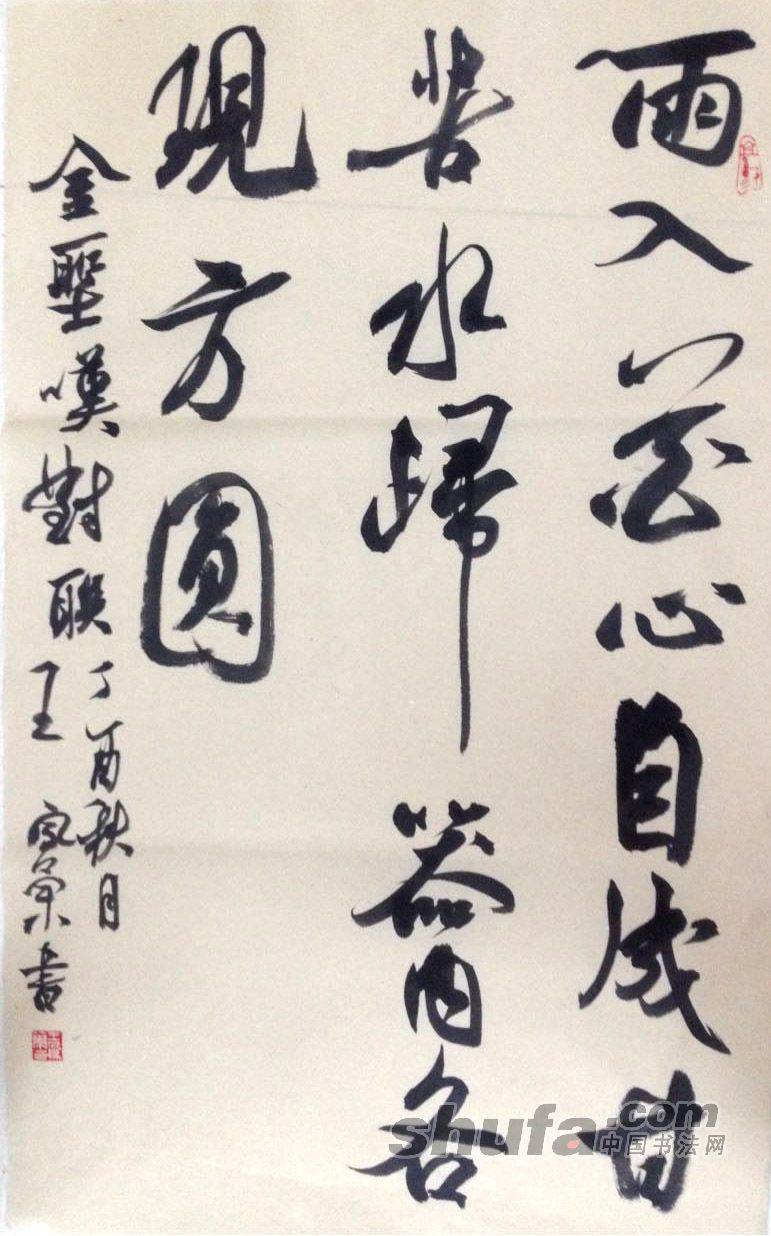 雨入花心自成甘
苦水歸器内各
現方圓
金聖嘆對聯
丁酉秋月
王家
書
shufa.com
中国书法网